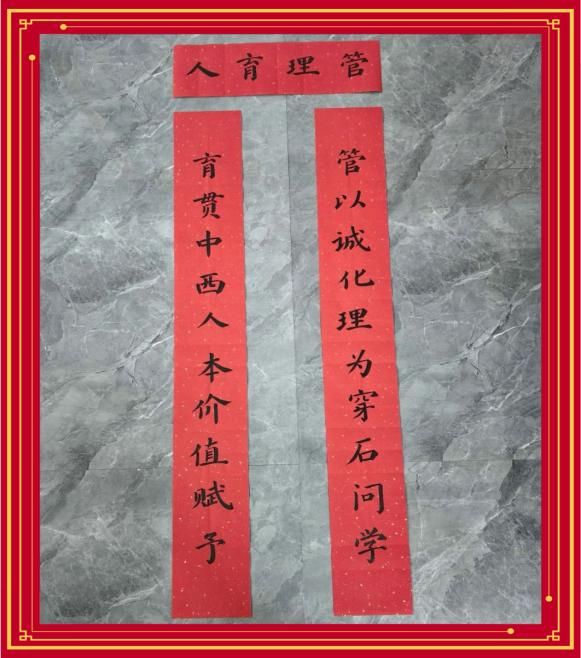 管理育人
管以诚化理为穿石问学
育贯中西人本价值赋予